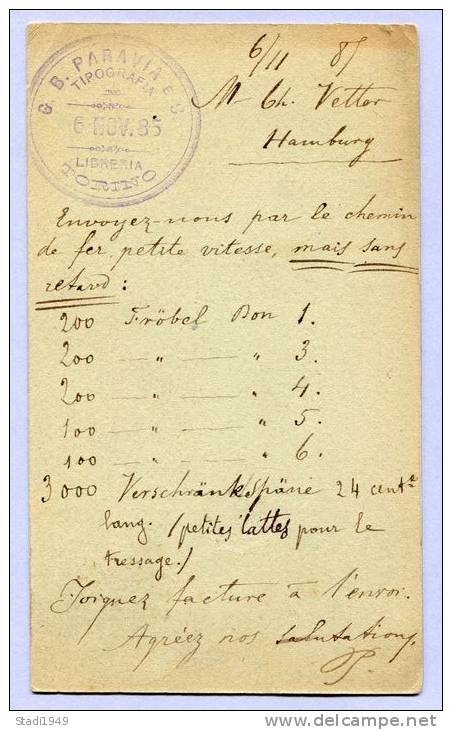 G. B. PARAVIA E C.
TIPOGRAFIA
6 NOV. 85
LIBRERIA
TORINO
6/11 85
Mr Ch. Vetter
Hamburg
Envoyez-nous par le chemin
de fer, petite vitesse, mais sans
retard :
200 Fröbel Bon 1.
200 — " — " 3.
200 — " — " 4.
100 — " — " 5.
100 — " — " 6.
3000 Verschränkspäne 24 cent.
lang. (petites lattes pour le
tressage.)
Joignez facture à l'envoi.
Agréez nos salutations,
P.
Stadi1949
delcampe.net